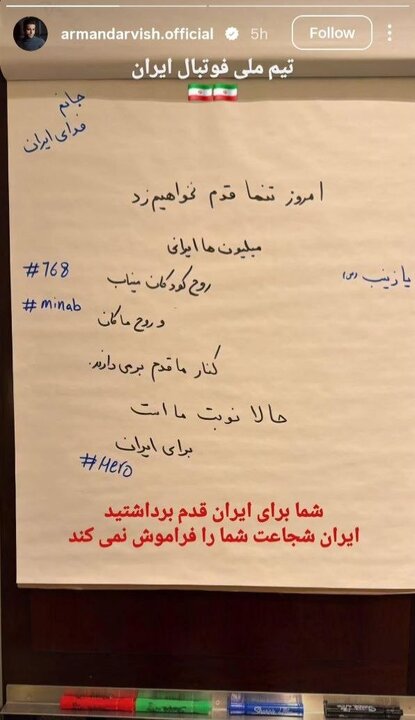 armandarvish.official 5h Follow
تیم ملی فوتبال ایران
جانم
فدای ایران
امروز تنها قدم نخواهیم زد
میلیون ها ایرانی
#768
روح کودکان میناب
یا زینب (س)
#minab
و روح ماکان
کنار ما قدم برمی دارند.
حالا نوبت ما است
برای ایران
#Hero
شما برای ایران قدم برداشتید
ایران شجاعت شما را فراموش نمی کند